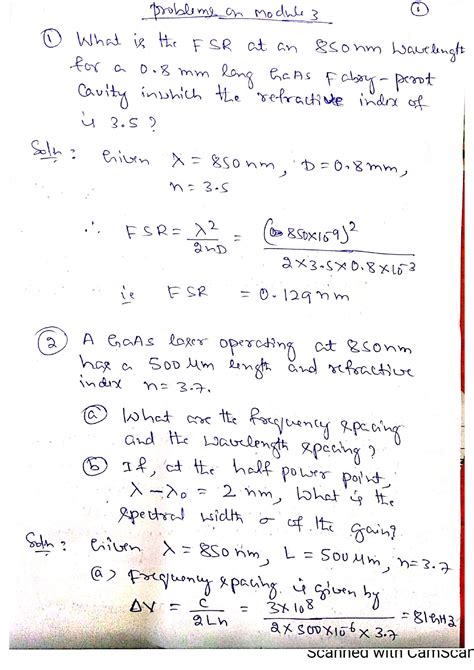 problems on module 3
①
① What is the FSR at an 850nm wavelength
for a 0.8 mm long GaAs Fabry-perot
cavity inwhich the refractive index of
is 3.5 ?
Soln : Given λ = 850 nm, D = 0.8 mm,
n = 3.5
∴ FSR = λ²/2nD = (850×10⁻⁹)²/2×3.5×0.8×10⁻³
ie FSR = 0.129 nm
② A GaAs laser operating at 850nm
has a 500 μm length and refractive
index n = 3.7.
ⓐ What are the frequency spacing
and the wavelength spacing ?
ⓑ If, at the half power point,
λ - λ₀ = 2 nm, What is the
spectral width σ of the gain?
Soln : Given λ = 850 nm, L = 500 μm, n=3.7
(a) Frequency spacing is given by
Δν = c/2Ln = 3×10⁸/2×500×10⁻⁶×3.7 = 81GHz
Scanned with CamScan